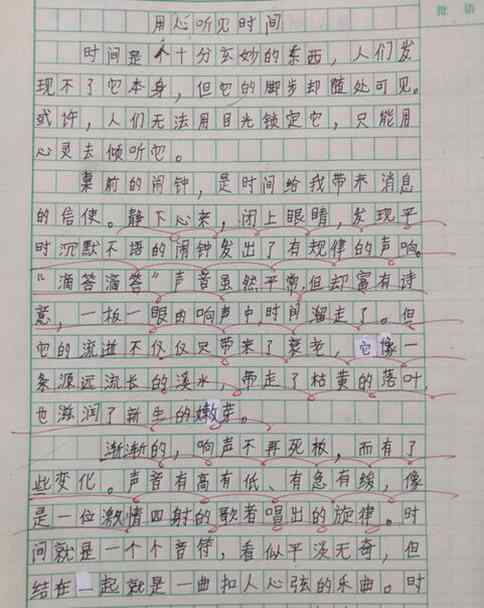 批 语
用心听见时间
时间是个十分玄妙的东西，人们发
现不了它本身，但它的脚步却随处可见。
或许，人们无法用目光锁定它，只能用
心灵去倾听它。
桌前的闹钟，是时间给我带来消息
的信使。静下心来，闭上眼睛，发现平
时沉默不语的闹钟发出了有规律的声响。
“滴答滴答”声音虽然平常，但却富有诗
意，一板一眼的响声中，时间溜走了。但
它的流逝不仅仅只带来了衰老，它像一
条源远流长的溪水，带走了枯黄的落叶，
也滋润了新生的嫩芽。
渐渐的，响声不再死板，而有了
些变化。声音有高有低、有急有缓，像
是一位激情四射的歌者唱出的旋律。时
间就是一个个音符，看似平淡无奇，但
结在一起就是一曲扣人心弦的乐曲。时